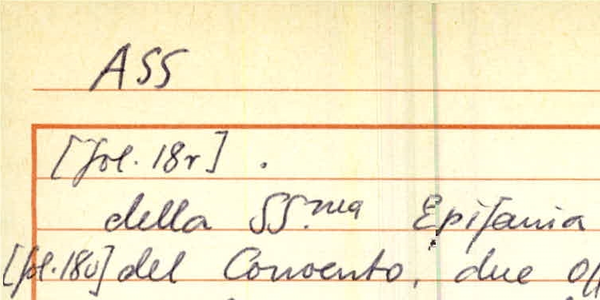 ASS
[fol. 18r] .
della SS.ma Epifania
[fol. 18v] del Convento, due